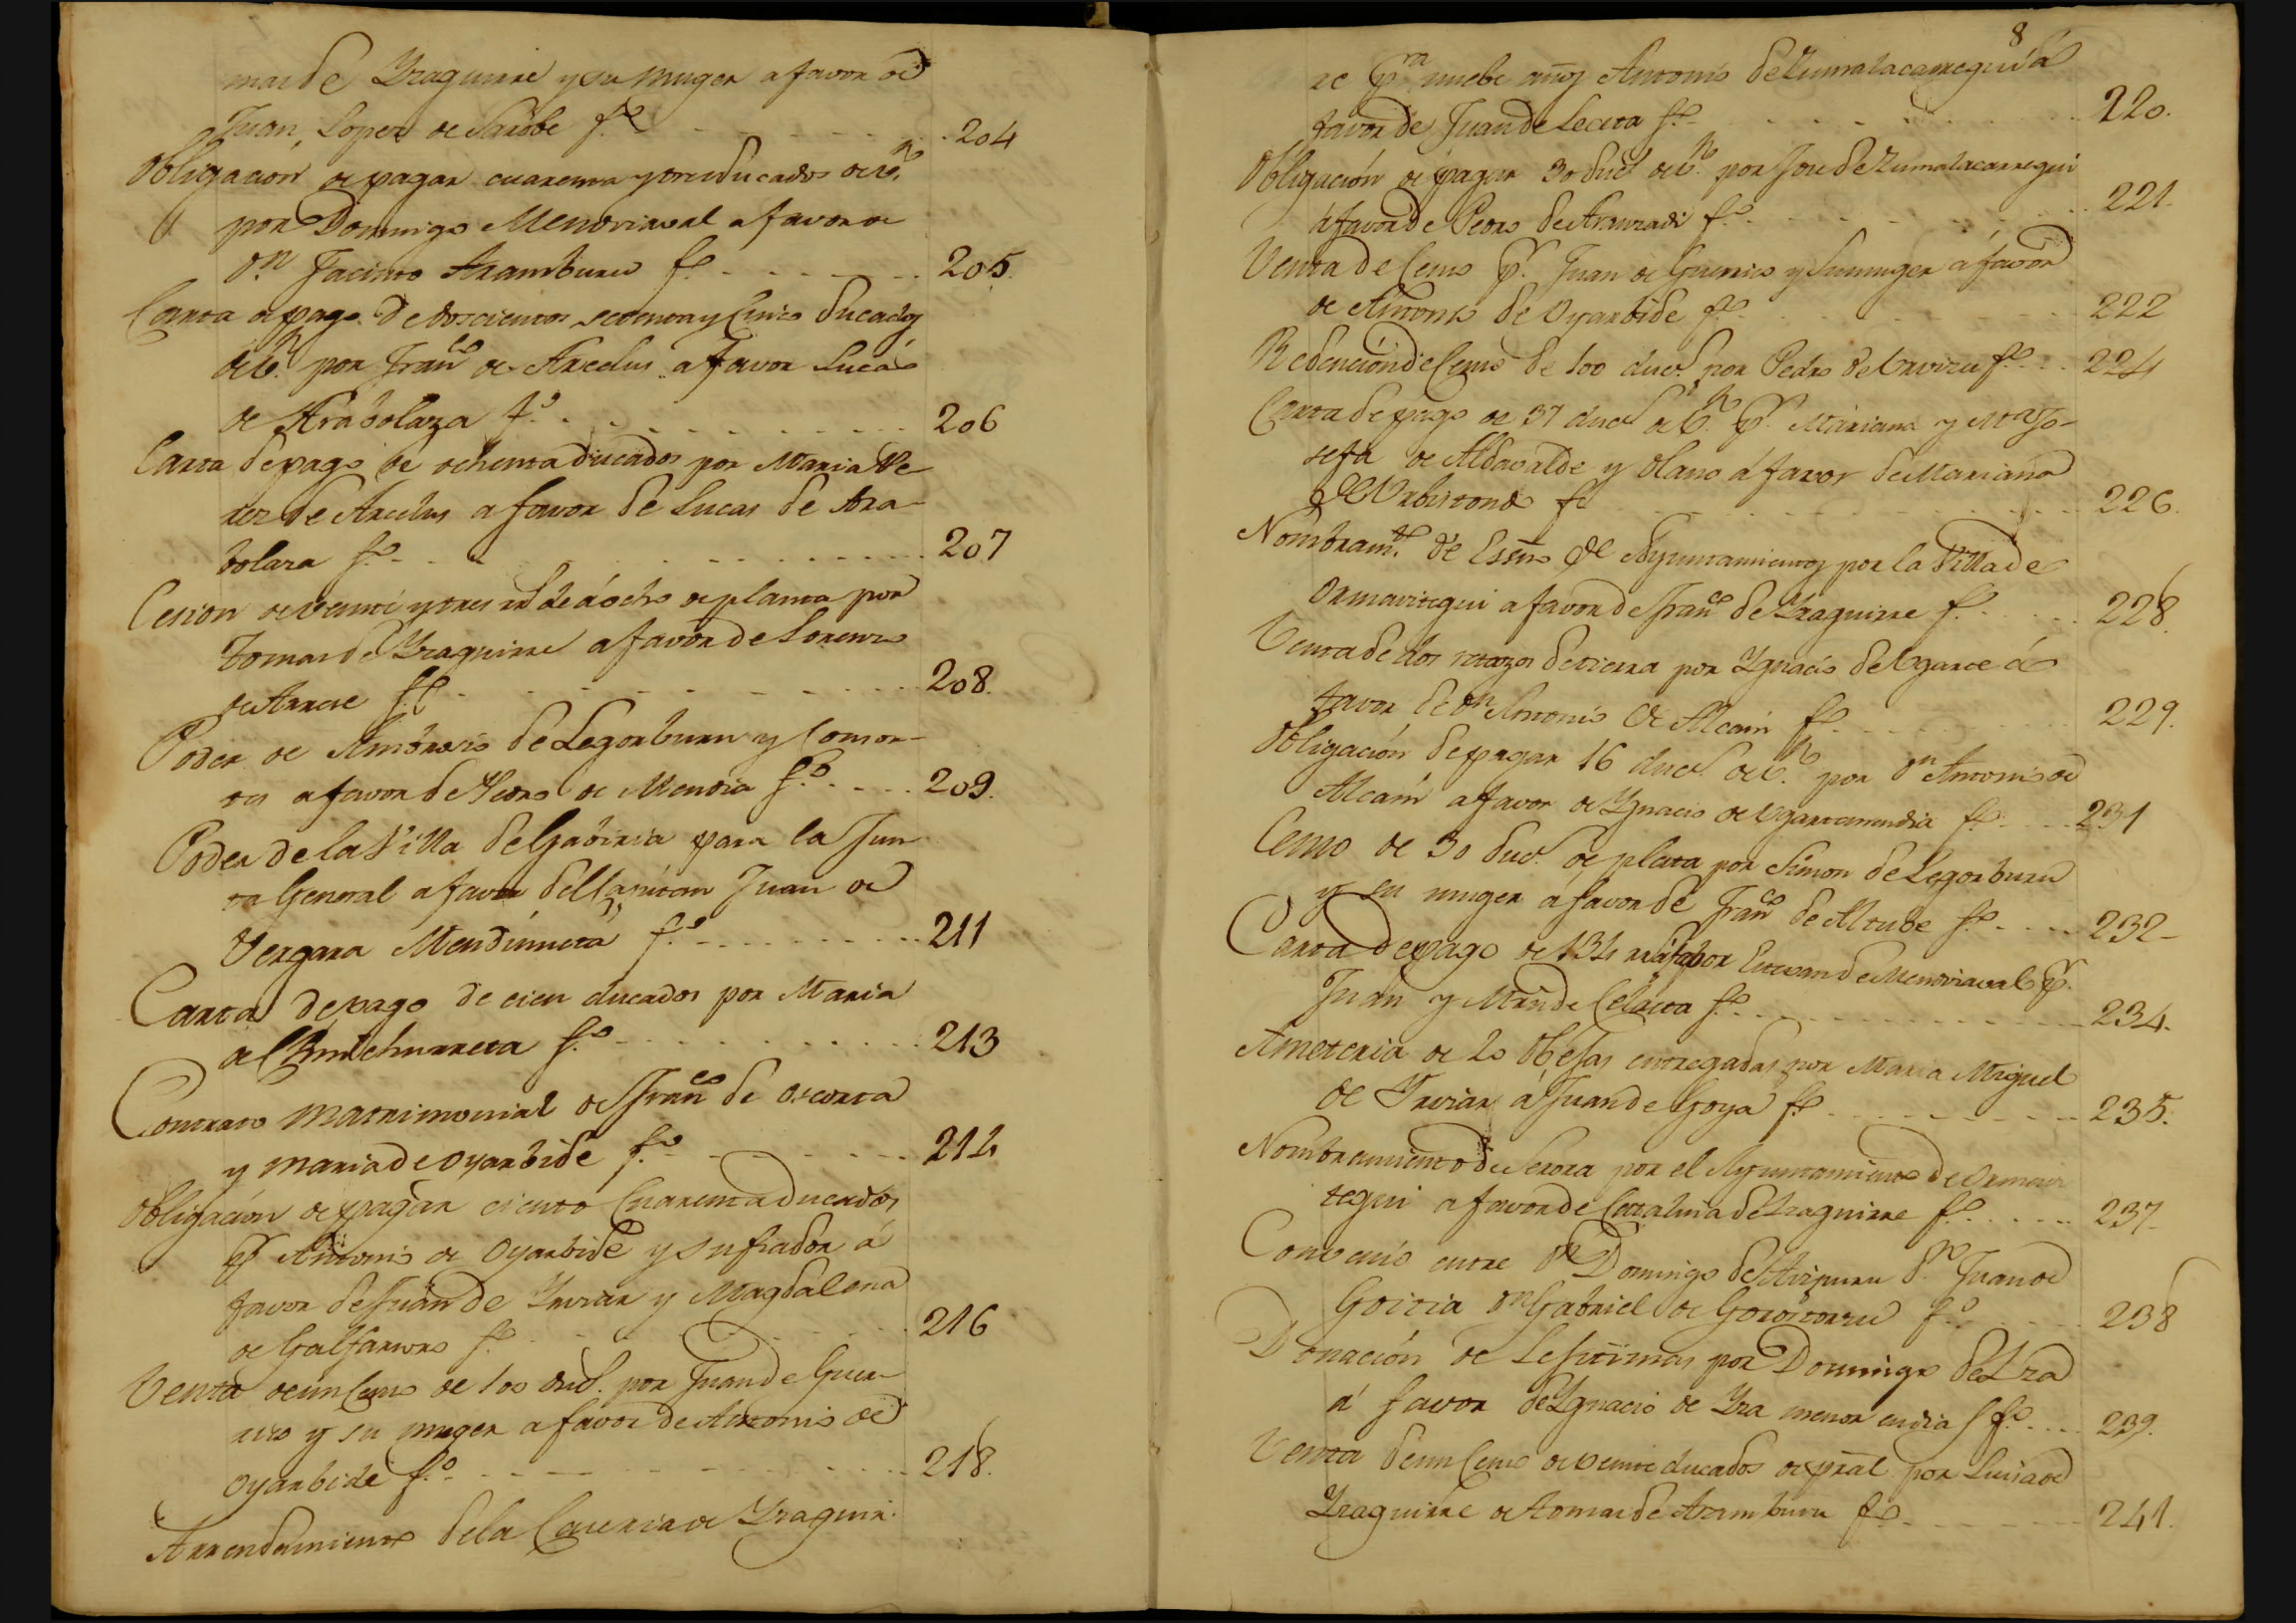 mas de Yraguirre y su muger a favor de
Juan Lopez de Sarobe f.º 204
Obligacion de pagar cuarenta y tres ducados de v.n
por Domingo Mendriaval a favor de
D.n Jacinto Aramburu f.º 205.
Carta de pago de doscientos setenta y Cinco Ducados
de v.n por Fran.co de Arcelus a favor Lucas
de Arabolaza f.º 206
Carta de pago de ochenta ducados por Maria Pe-
rez de Arcelus a favor de Lucas de Ara-
bolaza f.º 207
Cesion de veinte y tres rs de á ocho de planta por
Tomas de Yraguirre a favor de Lorenzo
de Arrese f.º 208.
Poder de Ambrosio de Legorburu y Consor-
tes a favor de Pedro de Mendia f.º 209.
Poder de la Villa de Gabiria para la Jun
ta General a favor del Capitan Juan de
Vergara Mendinueta f.º 211
Carta de pago de cien ducados por Maria
de f.º 213
Contrato Matrimonial de Fran.co de Ascorta
y Maria de Oyarbide f.º 214
Obligación de pagar ciento Cuarenta Ducados
p.r Antonio de Oyarbide y su fiador á
favor de Juan de Ynviar y Magdalena
de Galfarsoro f.º 216
Venta de un Censo de 100 duc.s por Juan de Guer-
rico y su muger a favor de Antonio de
Oyarbide f.º 218.
Arrendamiento de la Caseria de Yraguir.
8
re p.ra nuebe años Antonio de Zumalacarregui á
favor de Juan de Leceta f.º 220.
Obligación de pagar 30 duc.s de v.n por Jose de Zumalacarregui
á favor de Pedro de Aranzadi f.º 221.
Venta de Censo p.r Juan de Guerrico y Su muger á favor
de Antonio de Oyarbide f.º 222
Redencion de Censo de 100 duc.s por Pedro de Urvizu f.º 224
Carta de pago de 37 duc.s de v.n p.r Mariana y M.a Jo-
sefa de Aldavalde y Olano á favor de Mariana
de Urbistondo f.º 226.
Nombram.to de Essno de Ayuntamientos por la Villa de
Ormaiztegui a favor de Fran.co de Yraguirre f.º 228.
Venta de dos retazos de tierra por Ygnacio de Ugarte á
favor de D.n Antonio de Alcain f.º 229.
Obligación de pagar 16 duc.s de v.n por D.n Antonio de
Alcain a favor de Ygnacio de Ugartemendia f.º 231
Censo de 30 duc.s de plata por Simon de Legorburu
y su muger a favor de Fran.co de Altube f.º 232
Carta de pago de 134 r.s á fabor Estevan de Mendriaval p.r
Juan y Mrn de Celaeta f.º 234.
Ameteria de 20 Obejas entregadas por Maria Miguel
de Ynviar á Juan de Goya f.º 235.
Nombramiento de Serora por el Ayuntamiento de Ormaiz
tegui a favor de Catalina de Yraguirre f.º 237
Convenio entre D.n Domingo de Aizpuru D.n Juan de
Goitia D.n Gabriel de Gorostorzu f.º 238
Donación de Lejitimas por Domingo de Yza
á favor de Ygnacio de Yza menor en dia f.º 239.
Venta de un Censo de veinte ducados de pral por Luisa de
Yraguirre de Tomas de Aramburu f.º 241.